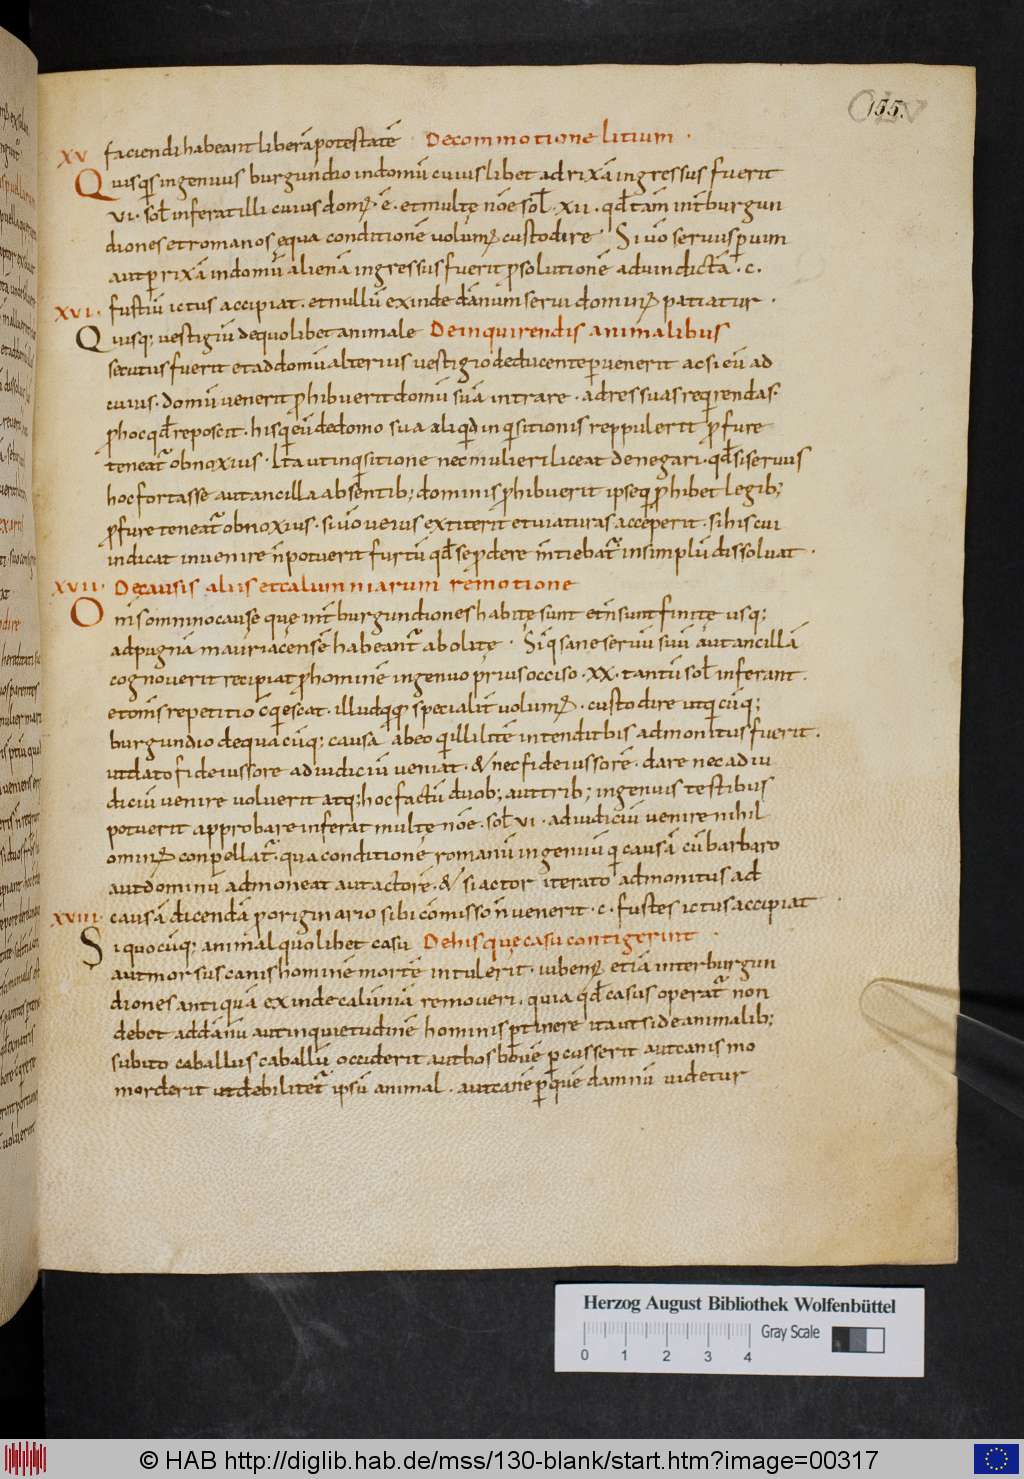 155.
XV faciendi habeant liberā potestatē De commotione litium ·
Quisq̄s ingenuus burgundio in domū cuiuslibet ad rixā ingressus fuerit
VI · sol̄ inferat illi cuius domꝰ · ē · et multę nōe sol̄ · XII · qđ tam inť burgun
diones et romanos ęqua conditionē volumꝰ custodire Si ůo seruus p̄ uim
aut p̱ rixā in domū alienā ingressus fuerit p̱ solutionē ad uindictā · c ·
XVI · fustiū ictus accipiat · et nullū exinde dānum serui dominꝰ patiatur ·
Quisq; uestigiū de quolibet animale De inquirendis animalibus
secutus fuerit et ad domū alterius uestigio deducente peruenerit ac si eū ad
cuius · domū uenerit ꝓhibuerit domū suā intrare · ad res suas reqirendas ·
ꝓ hoc qđ reposcit · his qi eū de domo sua aliqid inqisitionis reppulerit ꝓ fure
teneat᷑ obnoxius · Ita ut inqisitione nec mulieri liceat denegari · qđ si seruus
hoc fortasse aut ancilla absentib; dominis ꝓhibuerit ipse qi ꝓhibet legib;
ꝓ fure teneat᷑ obnoxius · si ůo ueius extiterit et uiaturas acceperit · si his cui
indicat inuenire n̄ potuerit furtū qđ se ꝑdere mťiebat᷑ in simplū dissoluat ·
XVII · De causis aliis et calumniarum remotione
Om̄s omnino cause que inť burgundiones habitę sunt et n̄ sunt finitę usq;
ad pugnā mauriacensē habeant᷑ abolitę · Siq̄ sane seruū suū aut ancillā
cognouerit recipiat ꝓ hominē ingenuo prius occiso · XX · tantū sol̄ inferant ·
et om̄s repetitio cq̄iescat · illud qoq; specialiť volumꝰ · custodire ut qicūq;
burgundio de quacūq; causa ab eo qi illi litē intendit bis admonitus fuerit ·
ut dato fideiussore ad iudiciū ueniat · & nec fideiussorē · dare nec ad iu
diciū uenire voluerit atq; hoc factū duob; aut trib; ingenuis testibus
potuerit approbare inferat multę nōe · sol̄ VI · ad iudiciū uenire nihil
ominꝰ conpellat᷑ · qua conditionē romanū ingenuū qi causā cū barbaro
aut dominū admoneat aut actorē · & si actor iterato admonitus ad
XVIII · causā dicendā p̱ originario sibi cōmisso n̄ uenerit · c · fustes ictus accipiat
Si quocūq; animal quolibet casu De his que casu contigerint ·
aut morsus canis hominē mortē intulerit · iubemꝰ etiā inter burgun
diones antiquā exinde calūniā remoueri · quia qđ casus operat᷑ non
debet ad dānū aut inquietudinē hominis ꝑtinere ita ut si de animalib;
subito caballus caballū occiderit aut bos bouē ꝑcusserit aut canis mo
morderit ut debilitet᷑ ipsū animal · aut canē ꝑ quē damnū uidetur
Herzog August Bibliothek Wolfenbüttel
Gray Scale
0 1 2 3 4
© HAB http://diglib.hab.de/mss/130-blank/start.htm?image=00317